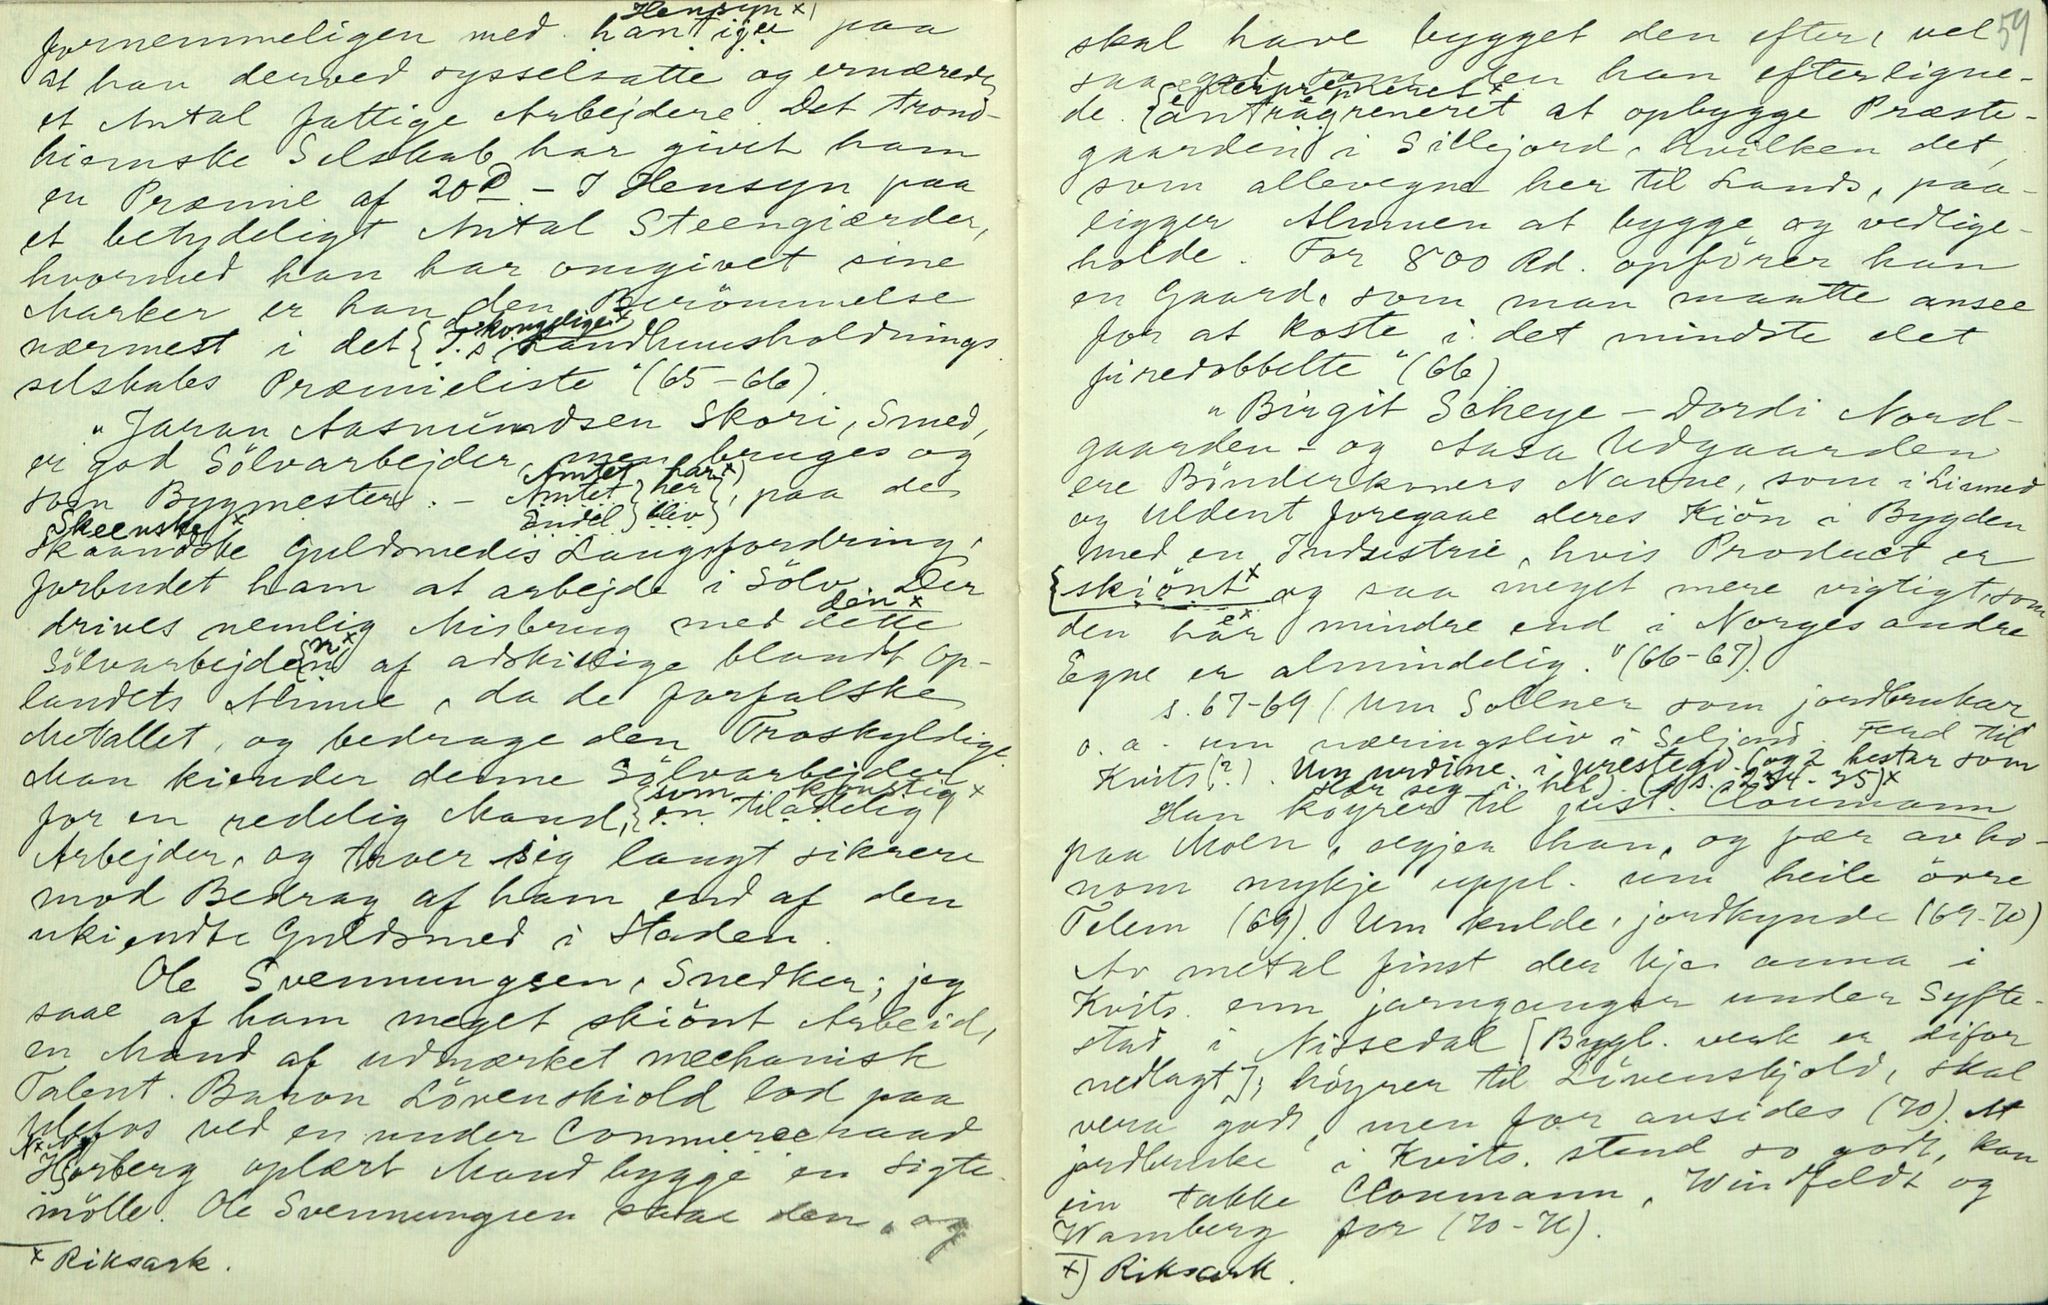 Hensyn x)
fornemmeligen med han tiger paa
at han derved sysselsatte og ernærede
et Antal fattige Arbejdere. Det trond-
hiemske Selskab har givet ham
en Præmie af 20 D. - I Hensyn paa
et betydeligt Antal Steengiærder,
hvormed han har omgivet sine
Marker er han den Berömmelse
kongelige x
nærmest i det { T. s { Landhuusholdnings
selskabs Præmieliste" (65-66)
"Jaran Aasmundsen Skori, Smed,
er god Sölvarbejder, men bruges og
Amtet har x)
som Bygmester. - Amtet } her { , paa de
Endel } blev }
Skeenske x
Skaanske Guldsmedes Laugsfordring,
forbudet ham at arbejde i Sölv. Der
den x
drives nemlig Misbrug med dette
n x
Sölvarbejde{n, af adskillige blandt Op-
landets Almue, da de forfalske
Metallet, og bedrage den Troskyldige.
Man kiender denne Sölvarbejder
som konstig x
for en redelig Mand, { en tiladelig
Arbejder, og troer sig langt sikrere
mod Bedrag af ham end af den
ukiendte Guldsmed i Staden.
Ole Svennungsen, Snedker; jeg
saae af ham meget skiönt Arbeid,
en Mand af udmærket mechanisk
Talent. Baron Lövenskiold lod paa
Ulefos ved en under Commerceraad
Hjorberg oplært Mand bygge en Sigte-
mölle. Ole Svennungsen saae den, og
x Riksark.
59
skal have bygget den efter, vel
saa god som den han efterligne-
enterpreneret x
de. { antragreneret at opbygge Præste-
gaarden i Sillejord, hvilken det,
som allevegne her til Lands, paa-
ligger Almuen at bygge og vedlige-
holde. For 800 Rd. opförer han
en Gaard, som man maatte ansee
for at koste i det mindste det
firedobbelte" (66)
"Birgit Scheye - Dordi Nord-
gaarden - og Aasa Udgaarden
ere Bönderkoners Navne, som i Linned
og Uldent foregaae deres Kiön i Bygden
med en Industrie, hvis Product er
{ skiönt x og saa meget mere vigtigt, som
e x
den här mindre end i Norges andre
Egne er almindelig." (66-67).
s. 67-69 / Um Sollner som jordbrukar
o. a. um næringsliv i Seljord. Ferd til
Kvits (?). Um urdine i prestegd. (og 2 hestar som
slær seg i hel) (s. 234-35) x
Han köyrer til just. Cloumann
paa Moen, segjer han, og fær av ho-
nom mykje uppl. um heile övre
Telem (69). Um kulde, jordkynde (69-70)
Av metal finst der ikje anna i
Kvits. enn jarngangar under Syfte-
stad i Nissedal [Bygl. verk er difor
nedlagt]; höyrer til Lövenskjold, skal
vera godt, men for avsides (70). At
jordbruke i Kvits. stend so godt, kan
ein takke Cloumann, Windfeldt og
Wamberg for (70-71).
x) Riksark.